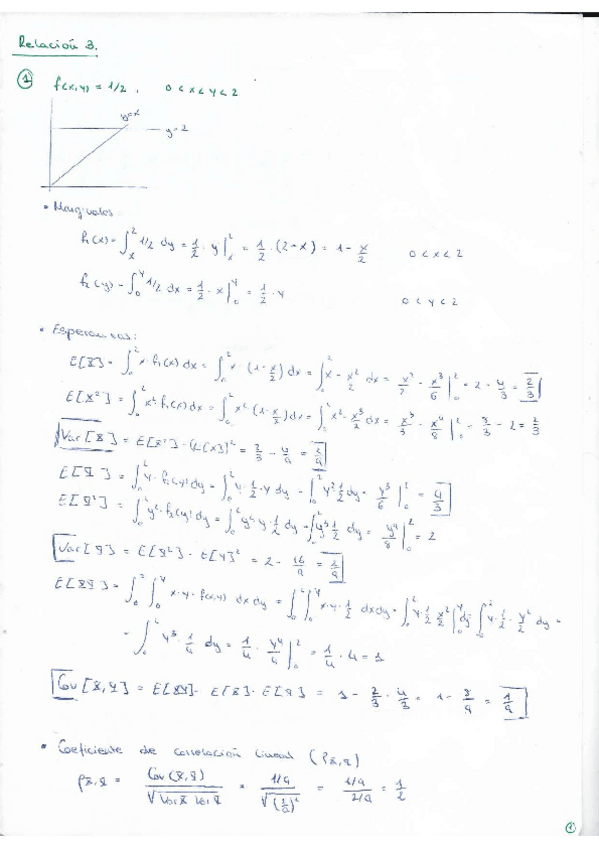 Relación 3.
① f(x,y) = 1/2 , 0 < x < y < 2
y=x
y=2
• Marginales
f₁(x) = ∫ₓ² 1/2 dy = 1/2 · y |ₓ² = 1/2 · (2-x) = 1 - x/2 0 < x < 2
f₂(y) = ∫₀ʸ 1/2 dx = 1/2 · x |₀ʸ = 1/2 · y 0 < y < 2
• Esperanzas:
E[X] = ∫₀² x · f₁(x) dx = ∫₀² x · (1 - x/2) dx = ∫₀² x - x²/2 dx = x²/2 - x³/6 |₀² = 2 - 4/3 = 2/3
E[X²] = ∫₀² x² · f₁(x) dx = ∫₀² x² · (1 - x/2) dx = ∫₀² x² - x³/2 dx = x³/3 - x⁴/8 |₀² = 8/3 - 2 = 2/3
Var[X] = E[X²] - (E[X])² = 2/3 - 4/9 = 2/9
E[Y] = ∫₀² y · f₂(y) dy = ∫₀² y · 1/2 · y dy = ∫₀² y² 1/2 dy = y³/6 |₀² = 4/3
E[Y²] = ∫₀² y² · f₂(y) dy = ∫₀² y² y · 1/2 dy = ∫₀² y³ 1/2 dy = y⁴/8 |₀² = 2
Var[Y] = E[Y²] - E[Y]² = 2 - 16/9 = 2/9
E[XY] = ∫₀² ∫₀ʸ x · y · f(x,y) dx dy = ∫₀² ∫₀ʸ x · y · 1/2 dx dy = ∫₀² y · 1/2 x²/2 |₀ʸ dy = ∫₀² y · 1/2 · y²/2 dy =
= ∫₀² y³ · 1/4 dy = 1/4 · y⁴/4 |₀² = 1/4 · 4 = 1
Cov[X,Y] = E[XY] - E[X] · E[Y] = 1 - 2/3 · 4/3 = 1 - 8/9 = 1/9
• Coeficiente de correlación lineal (ρX,Y)
ρX,Y = Cov(X,Y) / √(Var X Var Y) = 1/9 / √(2/9)² = 1/9 / 2/9 = 1/2
①